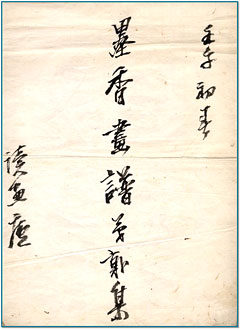 壬午初春
墨香畫譜第集
讀畫廬